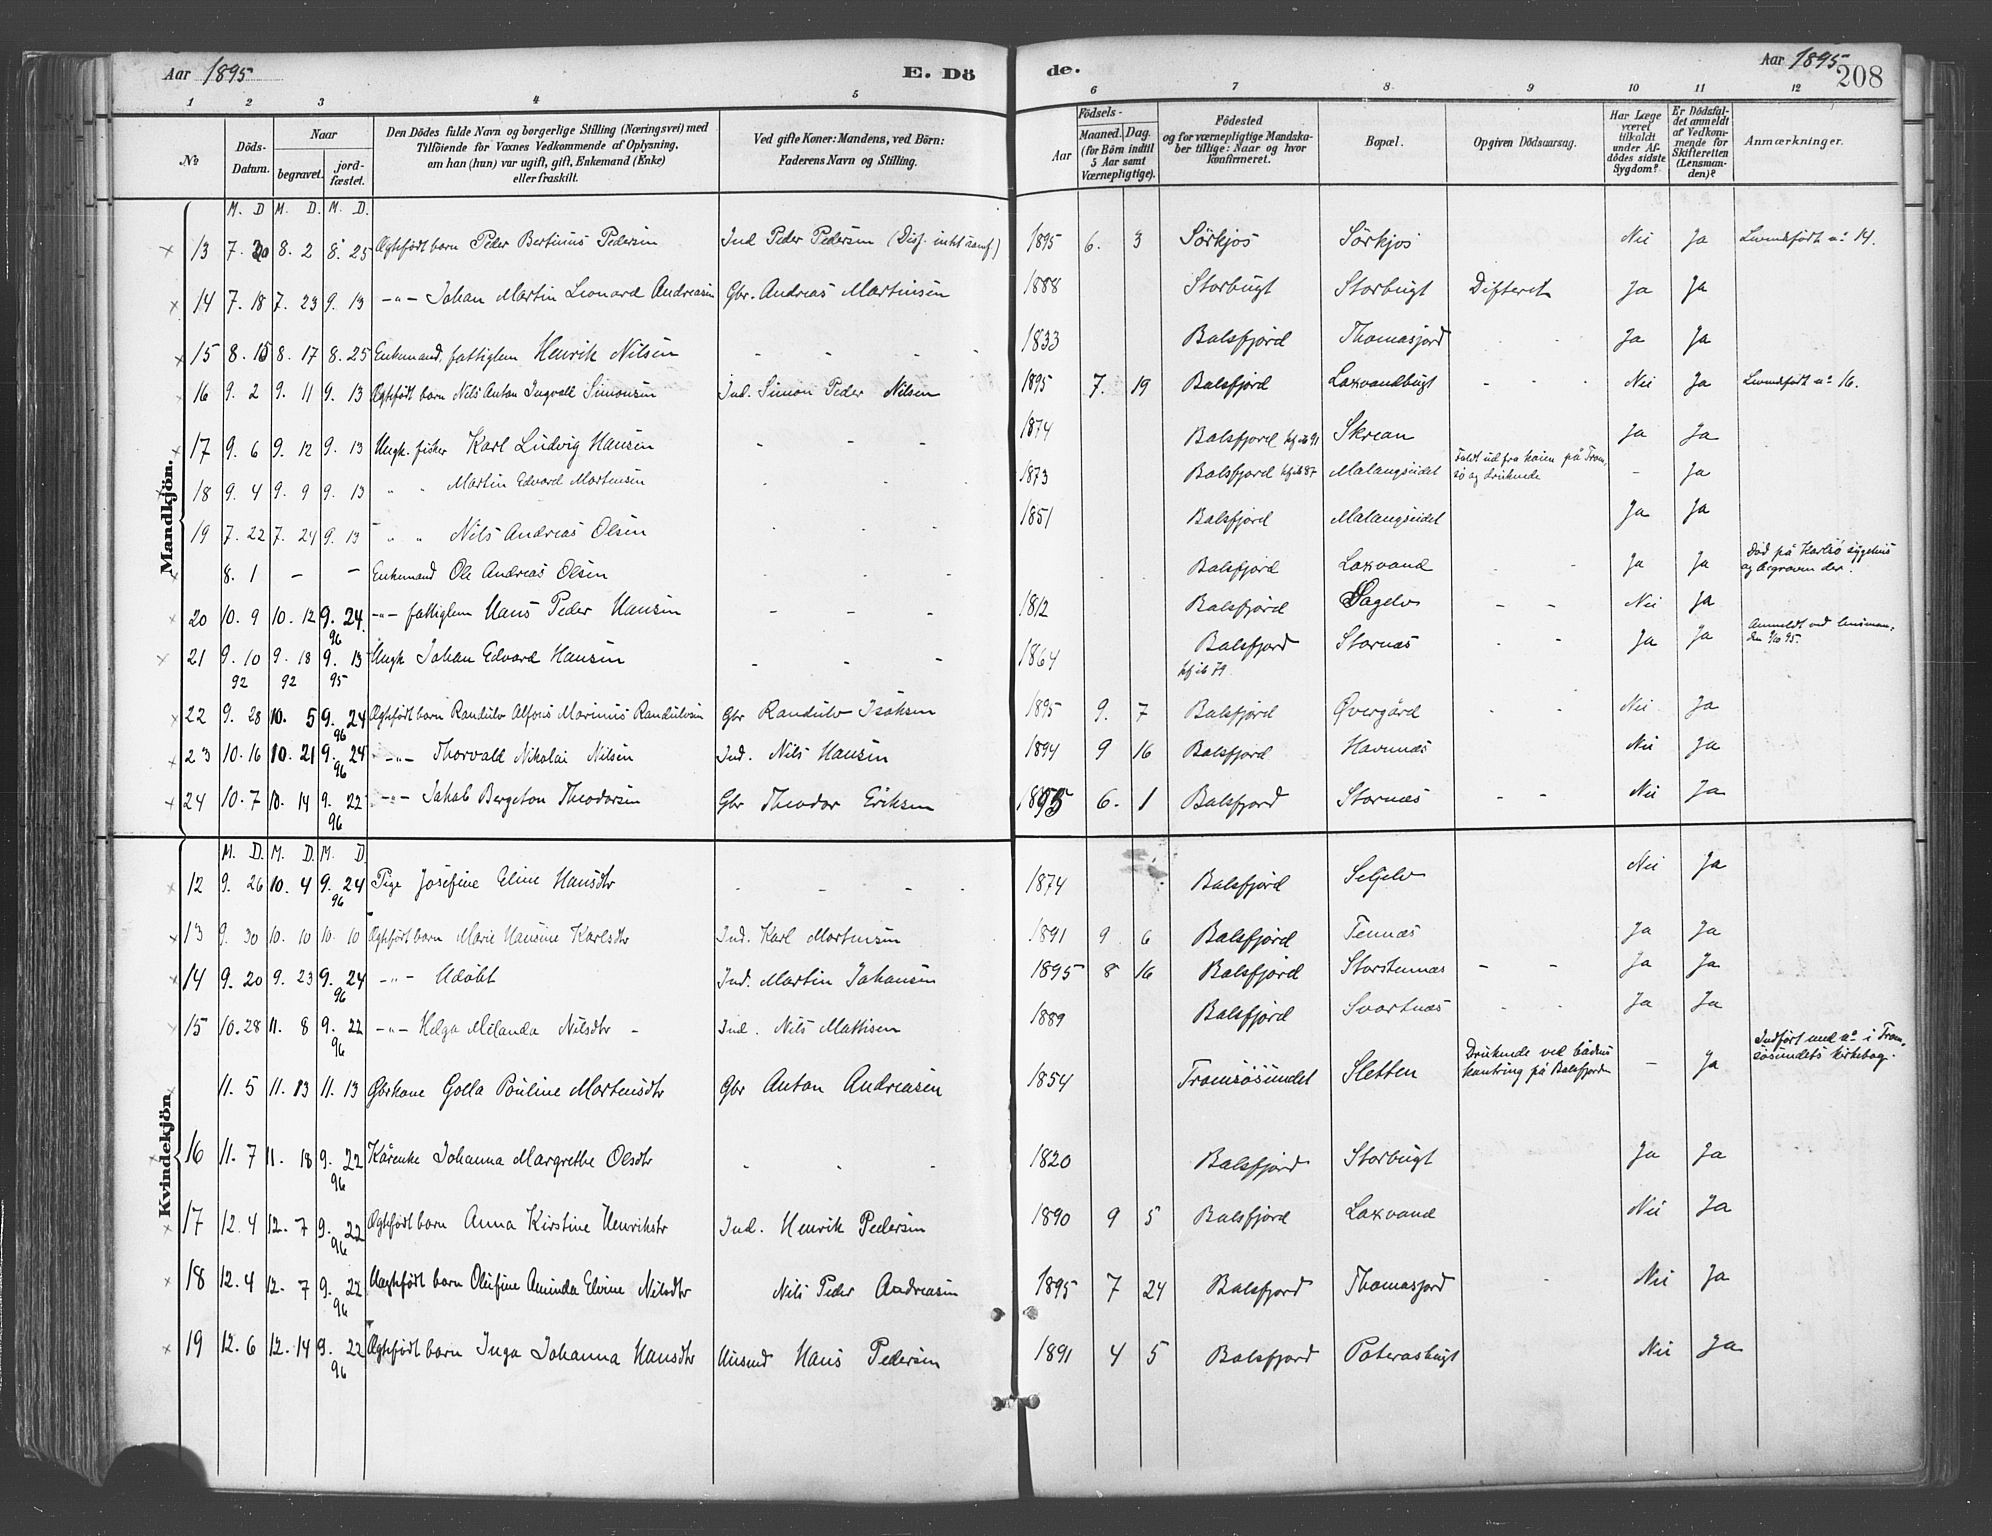 Aar 1895
E. Dö
de.
Aar 1895
208
1 2 3 4 5 6 7 8 9 10 11 12
№
Döds-
Datum.
Naar
begravet.
jord-
fæstet.
Den Dödes fulde Navn og borgerlige Stilling (Næringsvei) med
Tilföiende for Voxnes Vedkommende af Oplysning,
om han (hun) var ugift, gift, Enkemand (Enke)
eller fraskilt.
Ved gifte Koner: Mandens, ved Börn:
Faderens Navn og Stilling.
Födsels-
Aar
Maaned. Dag.
(for Börn indtil
5 Aar samt
Værnepligtige).
Födested
og for værnepligtige Mandska-
ber tillige: Naar og hvor
konfirmeret.
Bopæl.
Opgiven Dödsaarsag.
Har Læge
været
tilkaldt
under Af-
dödes sidste
Sygdom?
Er Dödsfal-
det anmeldt
af Vedkom-
mende for
Skifteretten
(Lensman-
den)?
Anmærkninger.
Mandkjön.
M. D M. D. M. D.
13 7. 20 8. 2 8. 25 Ægtefödt barn Peder Bertinus Pedersen Ind Peder Pedersen 1895 6. 3 Sörkjos Sörkjos Nei Ja Levendefödt no 14.
14 7. 18 7. 23 9. 13 -"- Johan Martin Leonard Andreasen Gbr. Andreas Martinsen 1888 Storbugt Storbugt Difterit Ja Ja
15 8. 15 8. 17 8. 25 Enkemand, fattiglem Henrik Nilsen - - - 1833 Balsfjord Thomasjord - - Ja Ja
16 9. 2 9. 11 9. 13 Ægtefödt barn Nils Anton Ingvald Simonsen Ind. Simon Peder Nilsen 1895 7. 19 Balsfjord Laxvandbugt - - - Nei Ja Levendefödt no 16.
17 9. 6 9. 12 9. 13 Ungk. fisker Karl Ludvig Hansen - - - 1874 Balsfjord kf. ib 91 Skrean Ja Ja
18 9. 4 9. 9 9. 13 " " Martin Edvard Mortensen - - - 1873 Balsfjord kf. ib 87 Malangseidet Faldt ud fra kaien på Trom-
sö og druknede - Ja
19 7. 22 7. 24 9. 13 " " Nils Andreas Olsen - - - 1851 Balsfjord Malangseidet Ja Ja
8. 1 - - Enkemand Ole Andreas Olsen - - - Balsfjord Laxvand - - Ja Ja Död på Karlsö sygehus
og begraven der.
20 10. 9 10. 12 9. 24 96 -"- fattiglem Hans Peder Hansen - - - 1812 Balsfjord Sagelv - - Nei Ja
21 9. 10 92 9. 18 92 9. 13 95 Ungk Johan Edvard Hansen - - - 1864 Balsfjord
kf. ib 79 Stornæs - - Ja Ja Anmeldt ved lensman-
den 95.
22 9. 28 10. 5 9. 24 96 Ægtefödt barn Randulv Alfons Marinus Randulvsen Gbr Randulv Isaksen 1895 9. 7 Balsfjord Övergård - - Nei Ja
23 10. 16 10. 21 9. 24 96 -"- Thorvald Nikolai Nilsen Ind. Nils Hansen 1894 9 16 Balsfjord Havnnæs Nei Ja
24 10. 7 10. 14 9. 22 96 -"- Jakob Bergeton Theodorsen Gbr Theodor Eriksen 1895 6. 1 Balsfjord Stornæs - - Nei Ja
Kvindekjön
M. D. M. D. M. D.
12 9. 26 10. 4 9. 24 96 Pige Josefine Eline Hansdtr - - - 1874 Balsfjord Seljelv Nei Ja
13 9. 30 10. 10 10. 10 Ægtefödt barn Marie Hansine Karlsdtr Ind. Karl Mortensen 1891 9 6 Balsfjord Tennæs Ja Ja
14 9. 20 9. 23 9. 24 96 -"- Udöbt Ind. Martin Johansen 1895 8 16 Balsfjord Storstennæs - - Ja Ja
15 10. 28 11. 8 9. 22 96 -"- Helga Milanda Nilsdtr - Ind. Nils Mattisen 1889 Balsfjord Svartnæs - - Ja Ja
11. 5 11. 13 11. 13 Gbrkone Golla Pouline Mortensdtr Gbr Anton Andreasen 1854 Tromsösundet Sletten Druknede ved båd
kantring på Balsfjord - Ja Indfört med no i Trom-
sösundets kirkebog.
16 11. 7 11. 18 9. 22 96 Kårenke Johanna Margrethe Olsdtr - - - 1820 Balsfjord Storbugt Ja Ja
17 12. 4 12. 7 9. 22 96 Ægtefödt barn Anna Kirstine Henriksdtr Ind. Henrik Pedersen 1890 9 5 Balsfjord Laxvand Nei Ja
18 12. 4 12. 7 9. 22 96 Uægtefödt barn Olufine Aminda Elvine Nilsdtr Nils Peder Andreasen 1895 7 24 Balsfjord Thomasjord - Nei Ja
19 12. 6 12. 14 9. 22 96 Ægtefödt barn Inga Johanna Hansdtr Husmd Hans Pedersen 1891 4 5 Balsfjord Paterasbugt Nei Ja